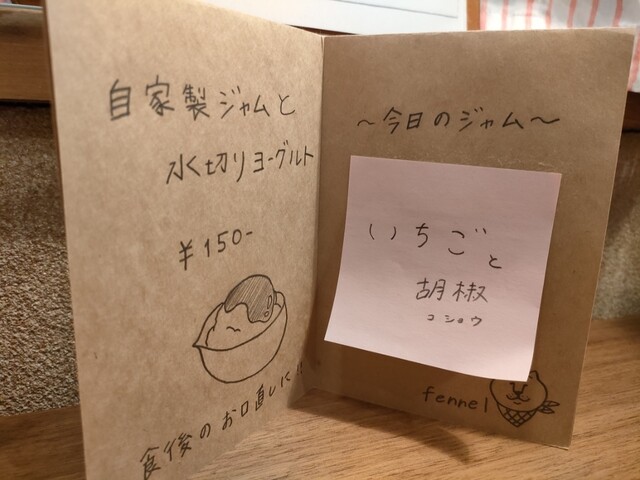 自家製ジャムと
水切りヨーグルト
¥150-
食後のお口直しに!!
～今日のジャム～
いちごと
胡椒
コショウ
fennel